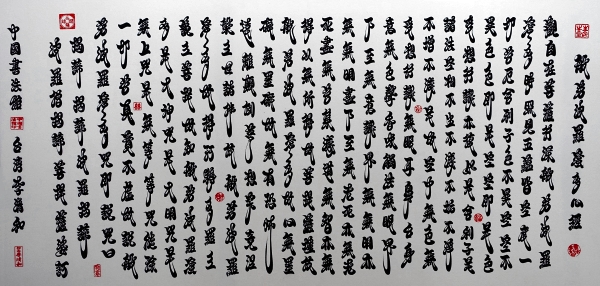 般若波羅蜜多心經
觀自在菩薩行深般若波羅
蜜多時照見五蘊皆空度一
切苦厄舍利子色不異空空不
異色色即是空空即是色受
想行識亦復如是舍利子是
諸法空相不生不滅不垢不淨
不增不減是故空中無色無
受想行識無眼耳鼻舌身
意無色聲香味觸法無眼界
乃至無意識界無無明亦
無無明盡乃至無老死亦無老
死盡無苦集滅道無智亦無
得以無所得故菩提薩埵
依般若波羅蜜多故心無罣
礙無罣礙故無有恐怖
遠離顛倒夢想究竟涅
槃三世諸佛依般若波羅
蜜多故得阿耨多羅三
藐三菩提故知般若波羅
蜜多是大神咒是大明咒是
無上咒是無等等咒能除
一切苦真實不虛故說般
若波羅蜜多咒即說咒曰
揭諦揭諦波羅揭諦
波羅僧揭諦菩提薩婆訶
中國書法館 台灣李